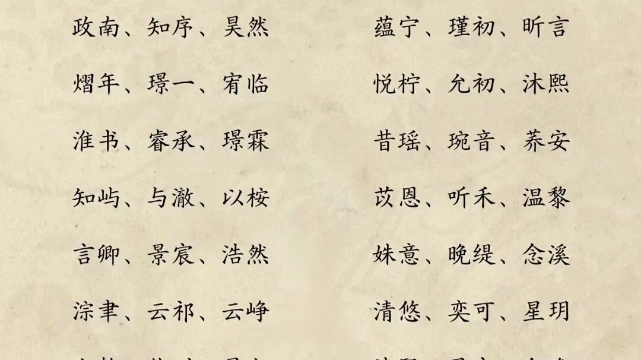 政南、知序、昊然
蕴宁、瑾初、昕言
熠年、璟一、宥临
悦柠、允初、沐熙
淮书、睿承、璟霖
昔瑶、琬音、荞安
知屿、与澈、以桉
苡恩、听禾、温黎
言卿、景宸、浩然
姝意、晚缇、念溪
淙聿、云祁、云峥
清悠、奕可、星玥